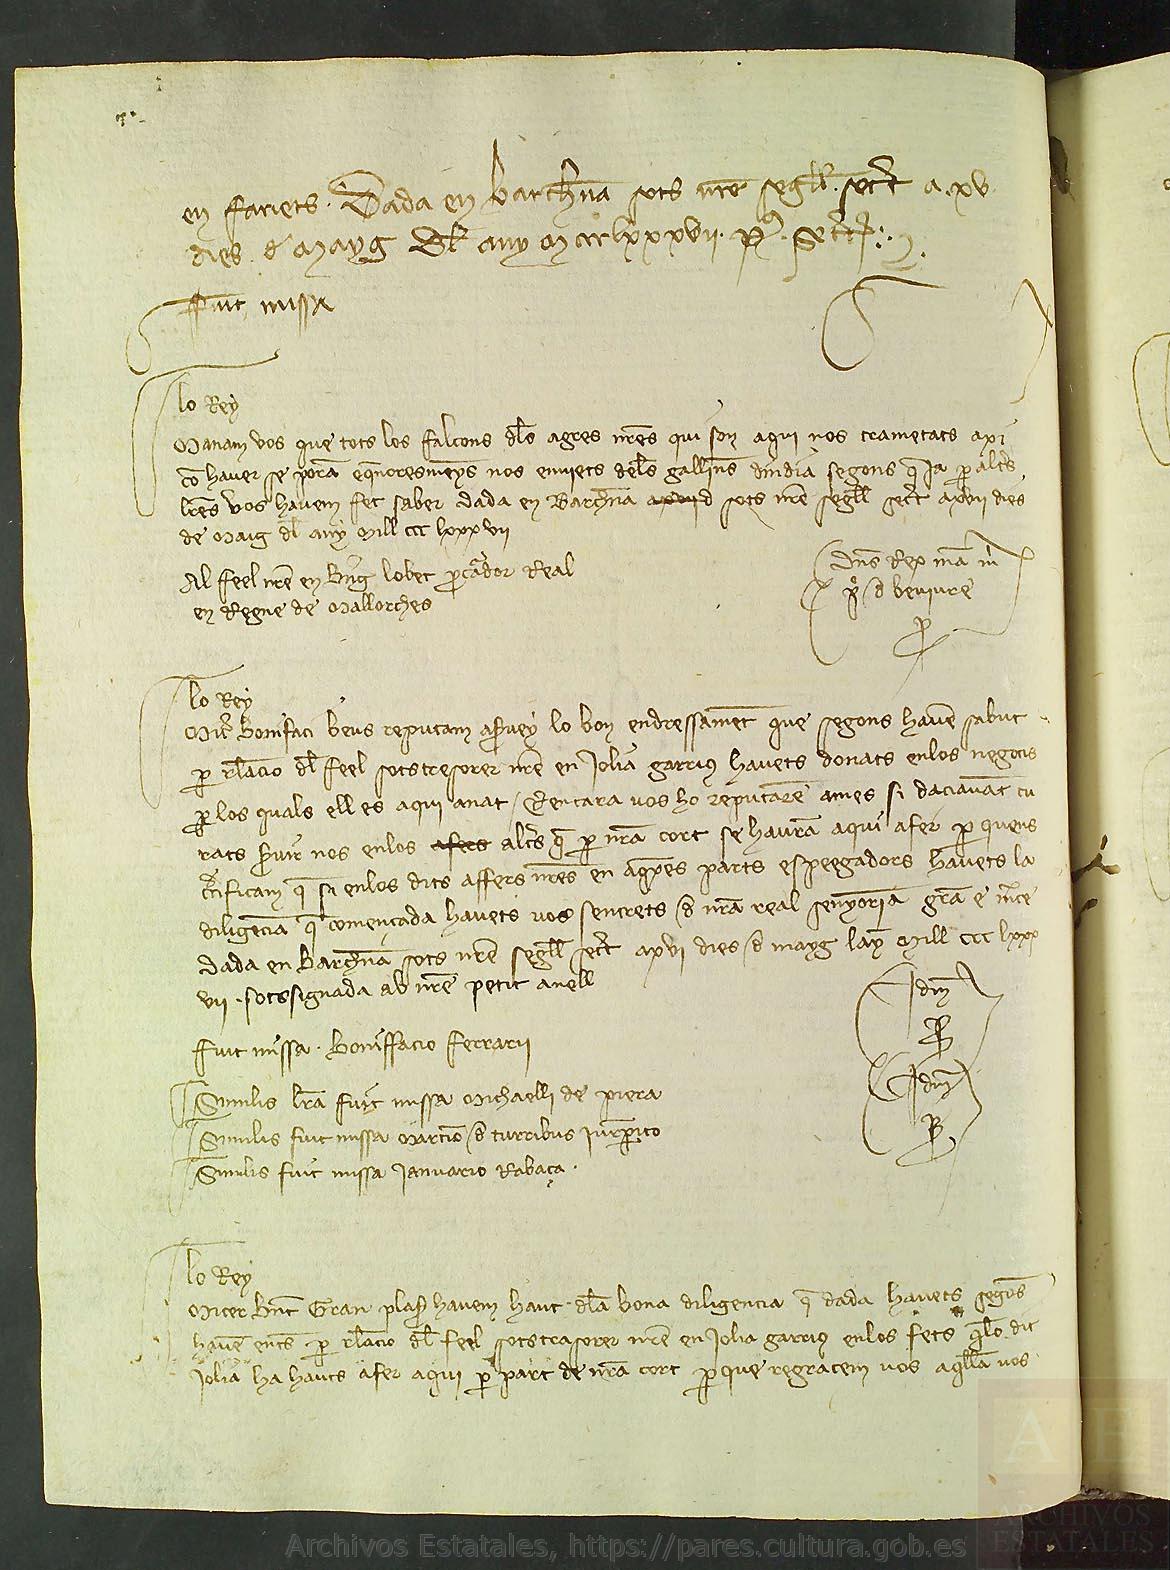 en fariets. Dada en Barchna sots nre segell secret a .xv.
dies de Mayg del any Mccclxxxvii.
Fuit missa
lo Rey
Manam vos que tots los falcons dels agres nres qui son aqui nos trametats axi
co haver se poran nos enviets dels gallines dindia segons q ja p altres
lres vos havem fet saber dada en Barchna sots nre segell secret a xvii dies
de Maig del any Mill ccc lxxxvii
Al feel nre en Bng lobet pcurador Real
en Regne de Mallorches
Dns Rex mà m
p. d beviure
P
lo Rey
Micer Bonifaci beus reputam a servey lo bon endressament que segons havem sabut
p relacio del feel sotstresorer nre en Jolia garrius havets donats en los negocis
p los quals ell es aqui anat / E encara vos ho reputarem a mes si daciavant cu
rats servir nos en los afers altres q p nra cort se hauran aqui a fer p quens
certificam q si en los dits affers nres en aqstes parts espeegadors havets la
diligencia q comencada havets vos sencrets d nra real senyoria gra e merce
dada en Barchna sots nre segell secret a xvi dies d mayg lay Mill ccc lxxx
vii. sotssignada ab nre petit anell
Fuit missa. Boniffacio Ferrarii
Similis lra fuit missa Michaelli de piera
Similis fuit missa d turribus jurpito
Similis fuit missa Januario Rabaça.
lo Rey
Micer Bnt Gran plaser havem haut dla bona diligencia q dada havets segons
havem entes p relacio del feel sotstrasorer nre en Jolia garrius en los fets qlo dit
Jolia ha hauts a fer aqui p part de nra cort p que regracem vos aqlla vos
Archivos Estatales, https://pares.cultura.gob.es
AE
ARCHIVOS
ESTATALES